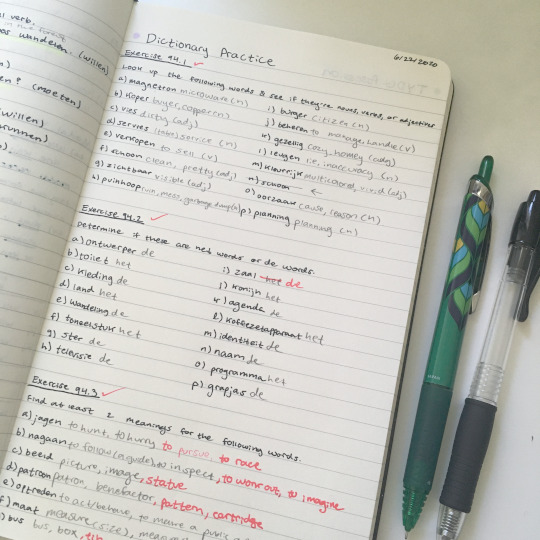 al verb.
wandelen. (willen)
en? (moeten)
willen)
kunnen)
Dictionary Practice
6/22/2020
Exercise 94.1
Look up the following words & see if they're nouns, verbs, or adjectives
a) magnetron microwave (n)
b) koper buyer, copper (n)
c) vies dirty (adj)
d) servies (table) service (n)
e) verkopen to sell (v)
f) schoon clean, pretty (adj)
g) zichtbaar visible (adj)
h) puinhoop ruin, mess, garbage dump (n)
i) burger citizen (n)
j) beheren to manage, handle (v)
k) gezellig cozy, homey (adj)
l) leugen lie, inaccuracy (n)
m) kleurrijk multicolored, vivid (adj)
n) schoon
o) oorzaak cause, reason (n)
p) planning planning (n)
Exercise 94.2
Determine if these are het words or de words.
a) ontwerper de
b) toilet het
c) kleding de
d) land het
e) wandeling de
f) toneelstuk het
g) ster de
h) televisie de
i) zaal het de
j) konijn het
k) agenda de
l) koffiezetapparaat het
m) identiteit de
n) naam de
o) programma het
p) grapjas de
Exercise 94.3
Find at least 2 meanings for the following words.
a) jagen to hunt, to hurry to pursue, to race
b) nagaan to follow (a guide), to inspect, to work out, to imagine
c) beeld picture, image, statue
d) patroon patron, benefactor, pattern, cartridge
e) optreden to act/behave, to
f) maat measure (size),
g) bus bus, box,